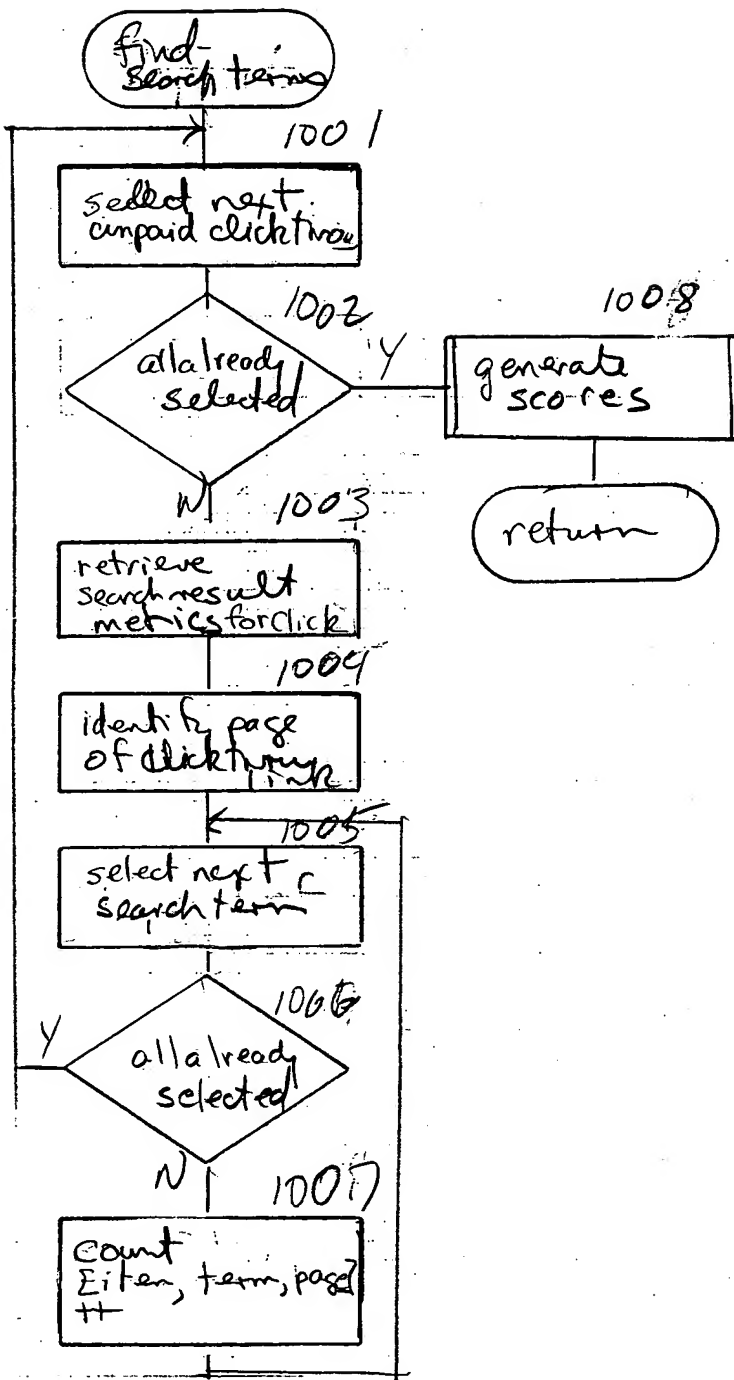 find-
search terms
1001
select next
unpaid clickthrou
1002
all already
selected
Y
1008
generate
scores
return
N
1003
retrieve
search result
metrics for click
1004
identify page
of clickthru
link
1005
select next
search term
1006
all already
selected
Y
N
1007
count
[item, term, page]
++